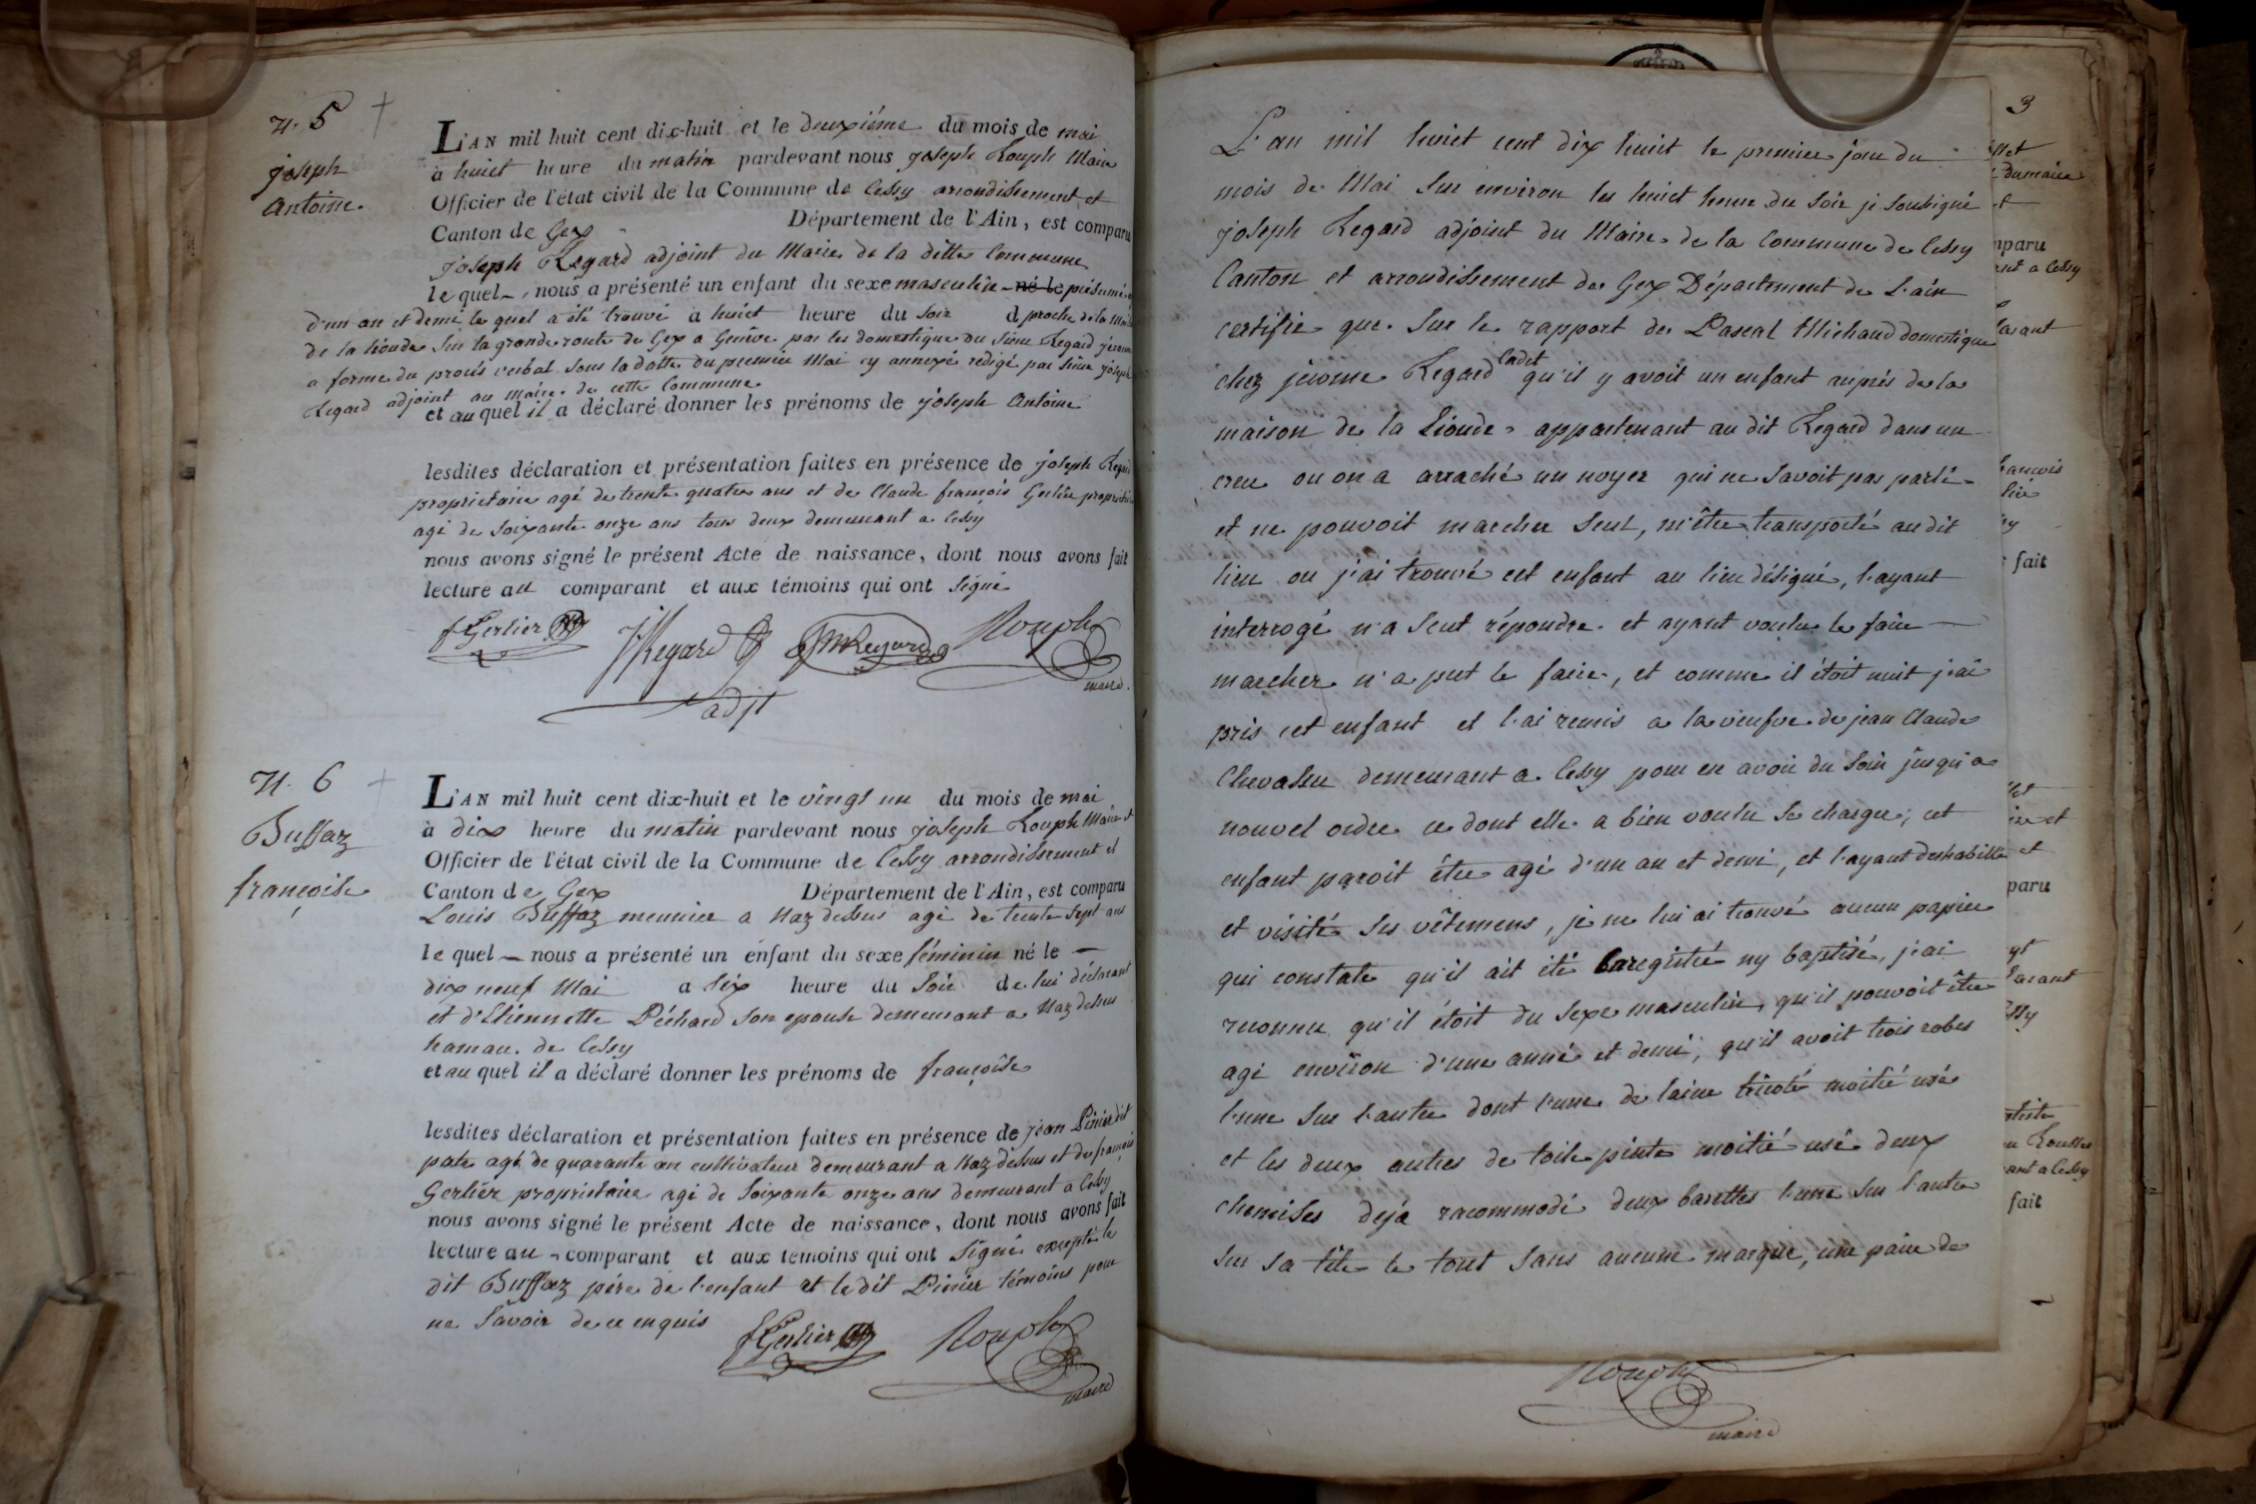 N. 5
joseph
Antoine.
L'AN mil huit cent dix-huit et le deuxiéme du mois de mai
à huict heure du matin pardevant nous joseph Rouph Maire
Officier de l'état civil de la Commune de Cessy arrondissement et
Canton de Gex Département de l'Ain, est comparu
joseph Regard adjoint du Maire de la ditte Commune
le quel nous a présenté un enfant du sexe masculin né le présumé
d'un an et demi le quel a été trouvé a huict heure du soir d proche de la
de la lioude sur la grande route de Gex a Genève par les domestique du sieur Regard
a forme du procés verbal sous la datte du premier Mai cy annexé rédigé par sieur joseph
Regard adjoint au maire de cette Commune
et au quel il a déclaré donner les prénoms de joseph Antoine
lesdites déclaration et présentation faites en présence de joseph Regard
proprietaire agé de trente quatre ans et de Claude françois Gerlier
agé de soixante onze ans tous deux demeurant a Cessy
nous avons signé le présent Acte de naissance, dont nous avons fait
lecture au comparant et aux témoins qui ont signé
f Gerlier JRegard JMRegard Rouph
adjt maire.
N. 6
Buffaz
françoise
L'AN mil huit cent dix-huit et le vingt un du mois de mai
à dix heure du matin pardevant nous joseph Rouph Maire et
Officier de l'état civil de la Commune de Cessy arrondissement et
Canton de Gex Département de l'Ain, est comparu
Louis Buffaz meunier a Naz dessus agé de trente sept ans
le quel nous a présenté un enfant du sexe féminin né le
dix neuf Mai a six heure du soir de lui déclarant
et d'Etiennette Péchard son epouse demeurant a Naz dessus
hamau de Cessy
et au quel il a déclaré donner les prénoms de françoise
lesdites déclaration et présentation faites en présence de jean Pinier dit
pate agé de quarante an cultivateur demeurant a Naz dessus et de françois
Gerlier proprietaire agé de soixante onze ans demeurant a Cessy
nous avons signé le présent Acte de naissance, dont nous avons fait
lecture au comparant et aux temoins qui ont signé excepté le
dit Buffaz père de l'enfant et le dit Pinier témoins pour
ne savoir de ce enquis
f Gerlier Rouph
maire
L'an mil huict cent dix huict le premier jour du
mois de Mai sur environ les huict heure du soir je soubsigné
joseph Regard adjoint du Maire de la Commune de Cessy
Canton et arrondissement de Gex Département de l'ain
certifie que sur le rapport de Pascal Michaud domestique
chez jérome Regard Cadet qu'il y avoit un enfant auprés de la
maison de la Lioude appartenant au dit Regard dans un
creu ou on a arraché un noyer qui ne savoit pas parlé
et ne pouvoit marcher seul, m'être transporté au dit
lieu ou j'ai trouvé cet enfant au lieu désigné, l'ayant
interrogé n'a seut répondre et ayant voulu le faire
marcher n'a put le faire, et comme il étoit nuit j'ai
pris cet enfant et l'ai remis a la veufve de jean Claude
Chevalier demeurant a Cessy pour en avoir du soin jusqu'a
nouvel ordre ce dont elle a bien voulu se charger; cet
enfant paroit être agé d'un an et demi, et l'ayant deshabillé
et visité ses vêtemens, je ne lui ai trouvé aucun papier
qui constate qu'il ait été enregistré ny baptisé, j'ai
reconnu qu'il étoit du sexe masculin, qu'il pouvoit être
agé environ d'une anné et demi, qu'il avoit trois robes
l'une sur l'autre dont l'une de laine tricoté moitié usé
et les deux autres de toile peinte moitié usé deux
chemises deja racommodé deux barettes l'une sur l'autre
sur sa tête le tout sans aucune marque, une paire de
3
du maire
et
mparu
rant a Cessy
larant
françois
fait
paru
Cessy
Rousset
rant a Cessy
fait
Rouph
maire